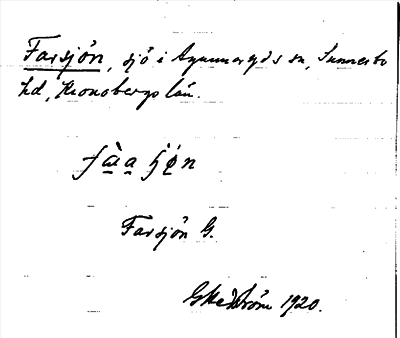 Farsjön, sjö i Agunnaryds sn, Sunnerbo
hd, Kronobergs län.
fàa sjön
Farsjön G.
1920.